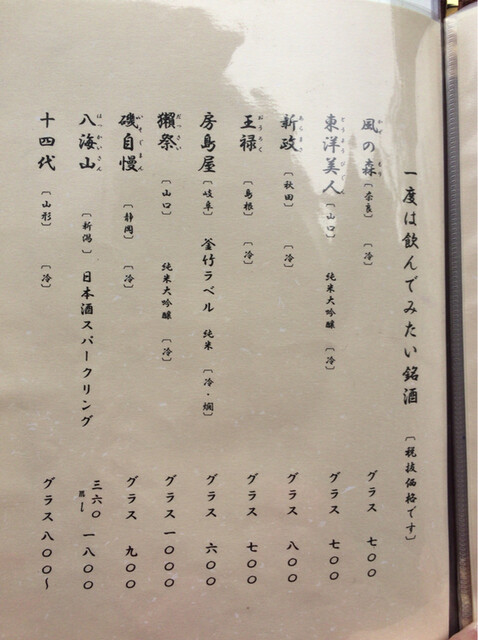 一度は飲んでみたい銘酒 〔税抜価格です〕
風の森〔奈良〕 〔冷〕 グラス 七〇〇
東洋美人〔山口〕 純米大吟醸 〔冷〕 グラス 七〇〇
新政〔秋田〕 〔冷〕 グラス 八〇〇
王禄〔島根〕 〔冷〕 グラス 七〇〇
房島屋〔岐阜〕 釜竹ラベル 純米 〔冷・燗〕 グラス 六〇〇
獺祭〔山口〕 純米大吟醸 〔冷〕 グラス 一〇〇〇
磯自慢〔静岡〕 〔冷〕 グラス 九〇〇
八海山〔新潟〕 日本酒スパークリング 三六〇 一八〇〇
十四代〔山形〕 〔冷〕 グラス 八〇〇〜